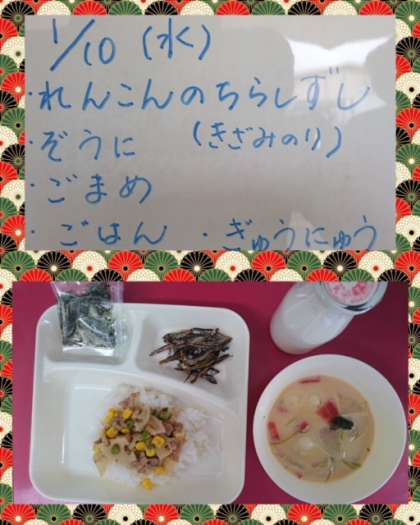 1/10 (水)
・れんこんのちらしずし
・ぞうに (きざみのり)
・ごまめ
・ごはん ・ぎゅうにゅう